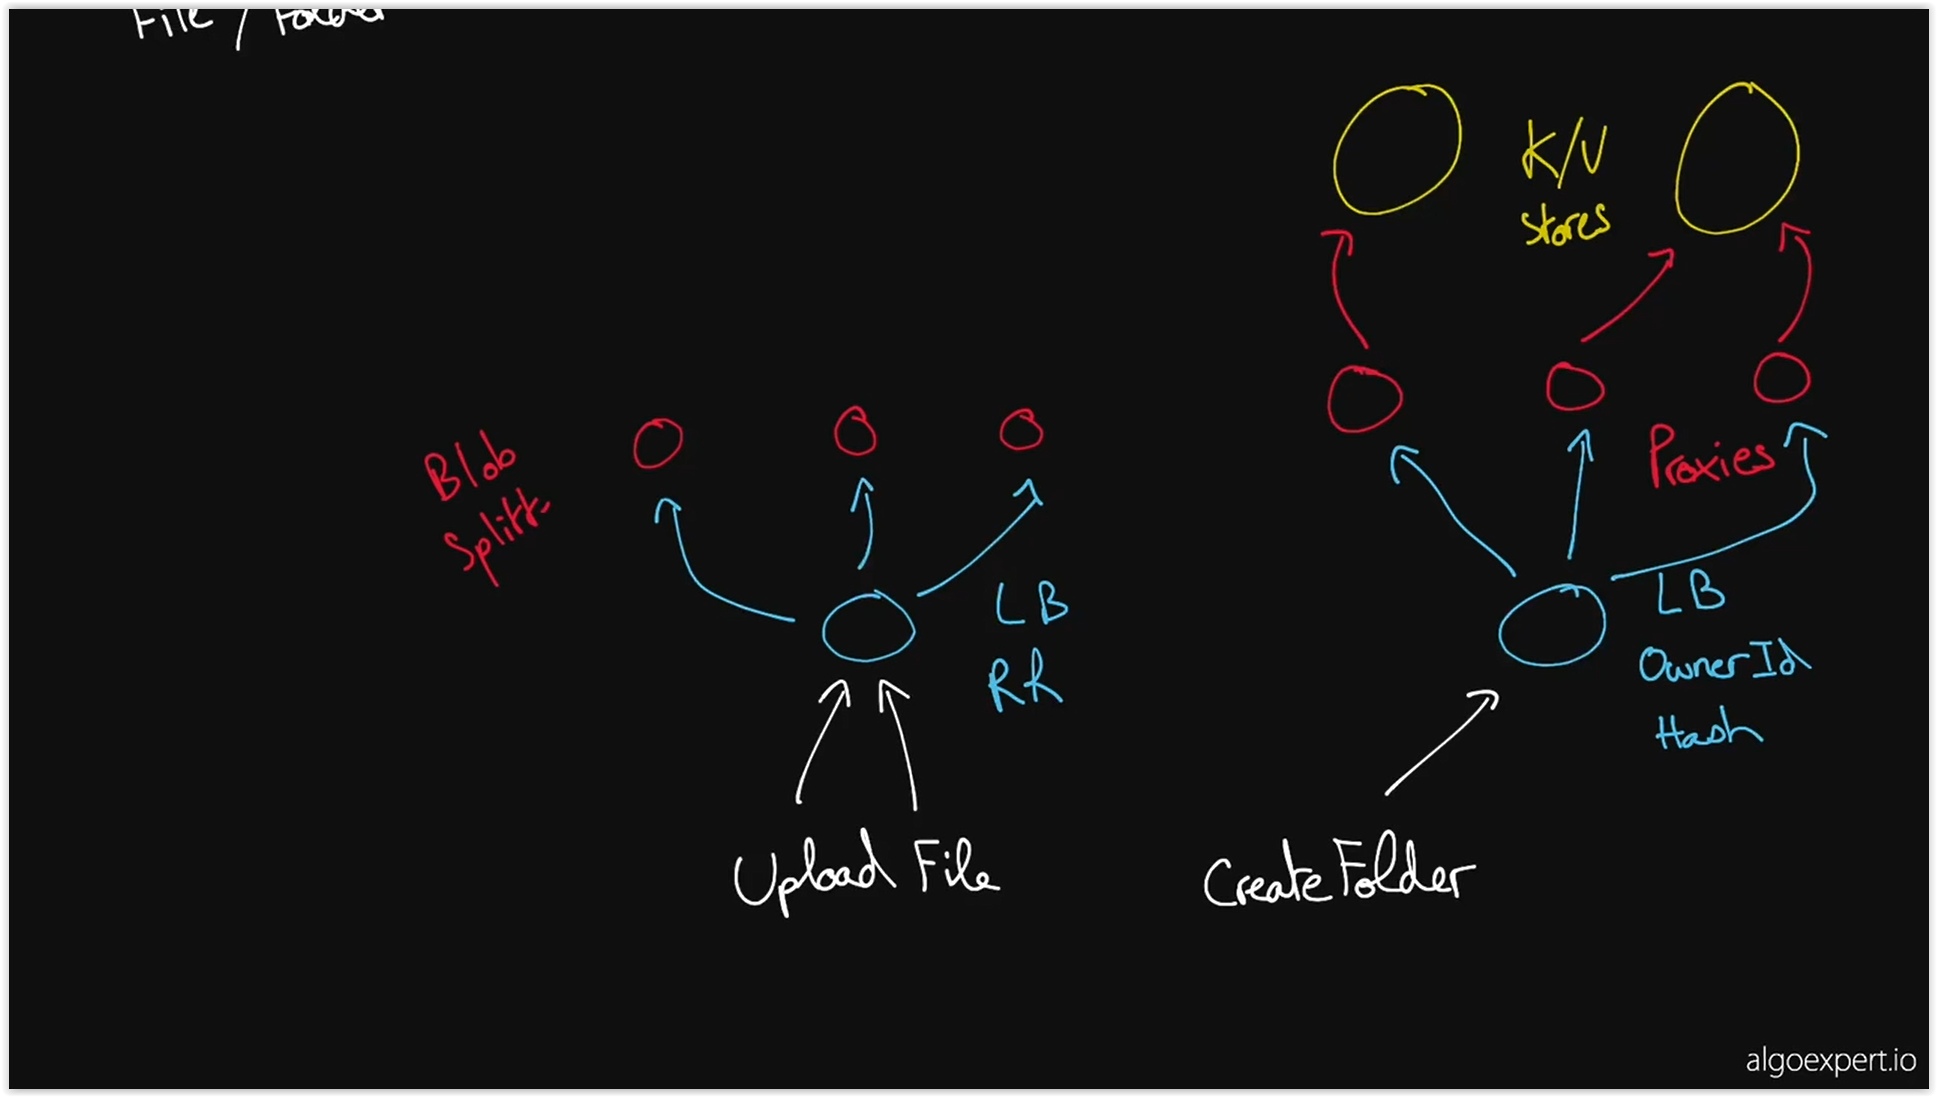 File / Folder
K/V
stores
Blob
Splitt.
Proxies
LB
RR
LB
OwnerId
Hash
Upload File
CreateFolder
algoexpert.io